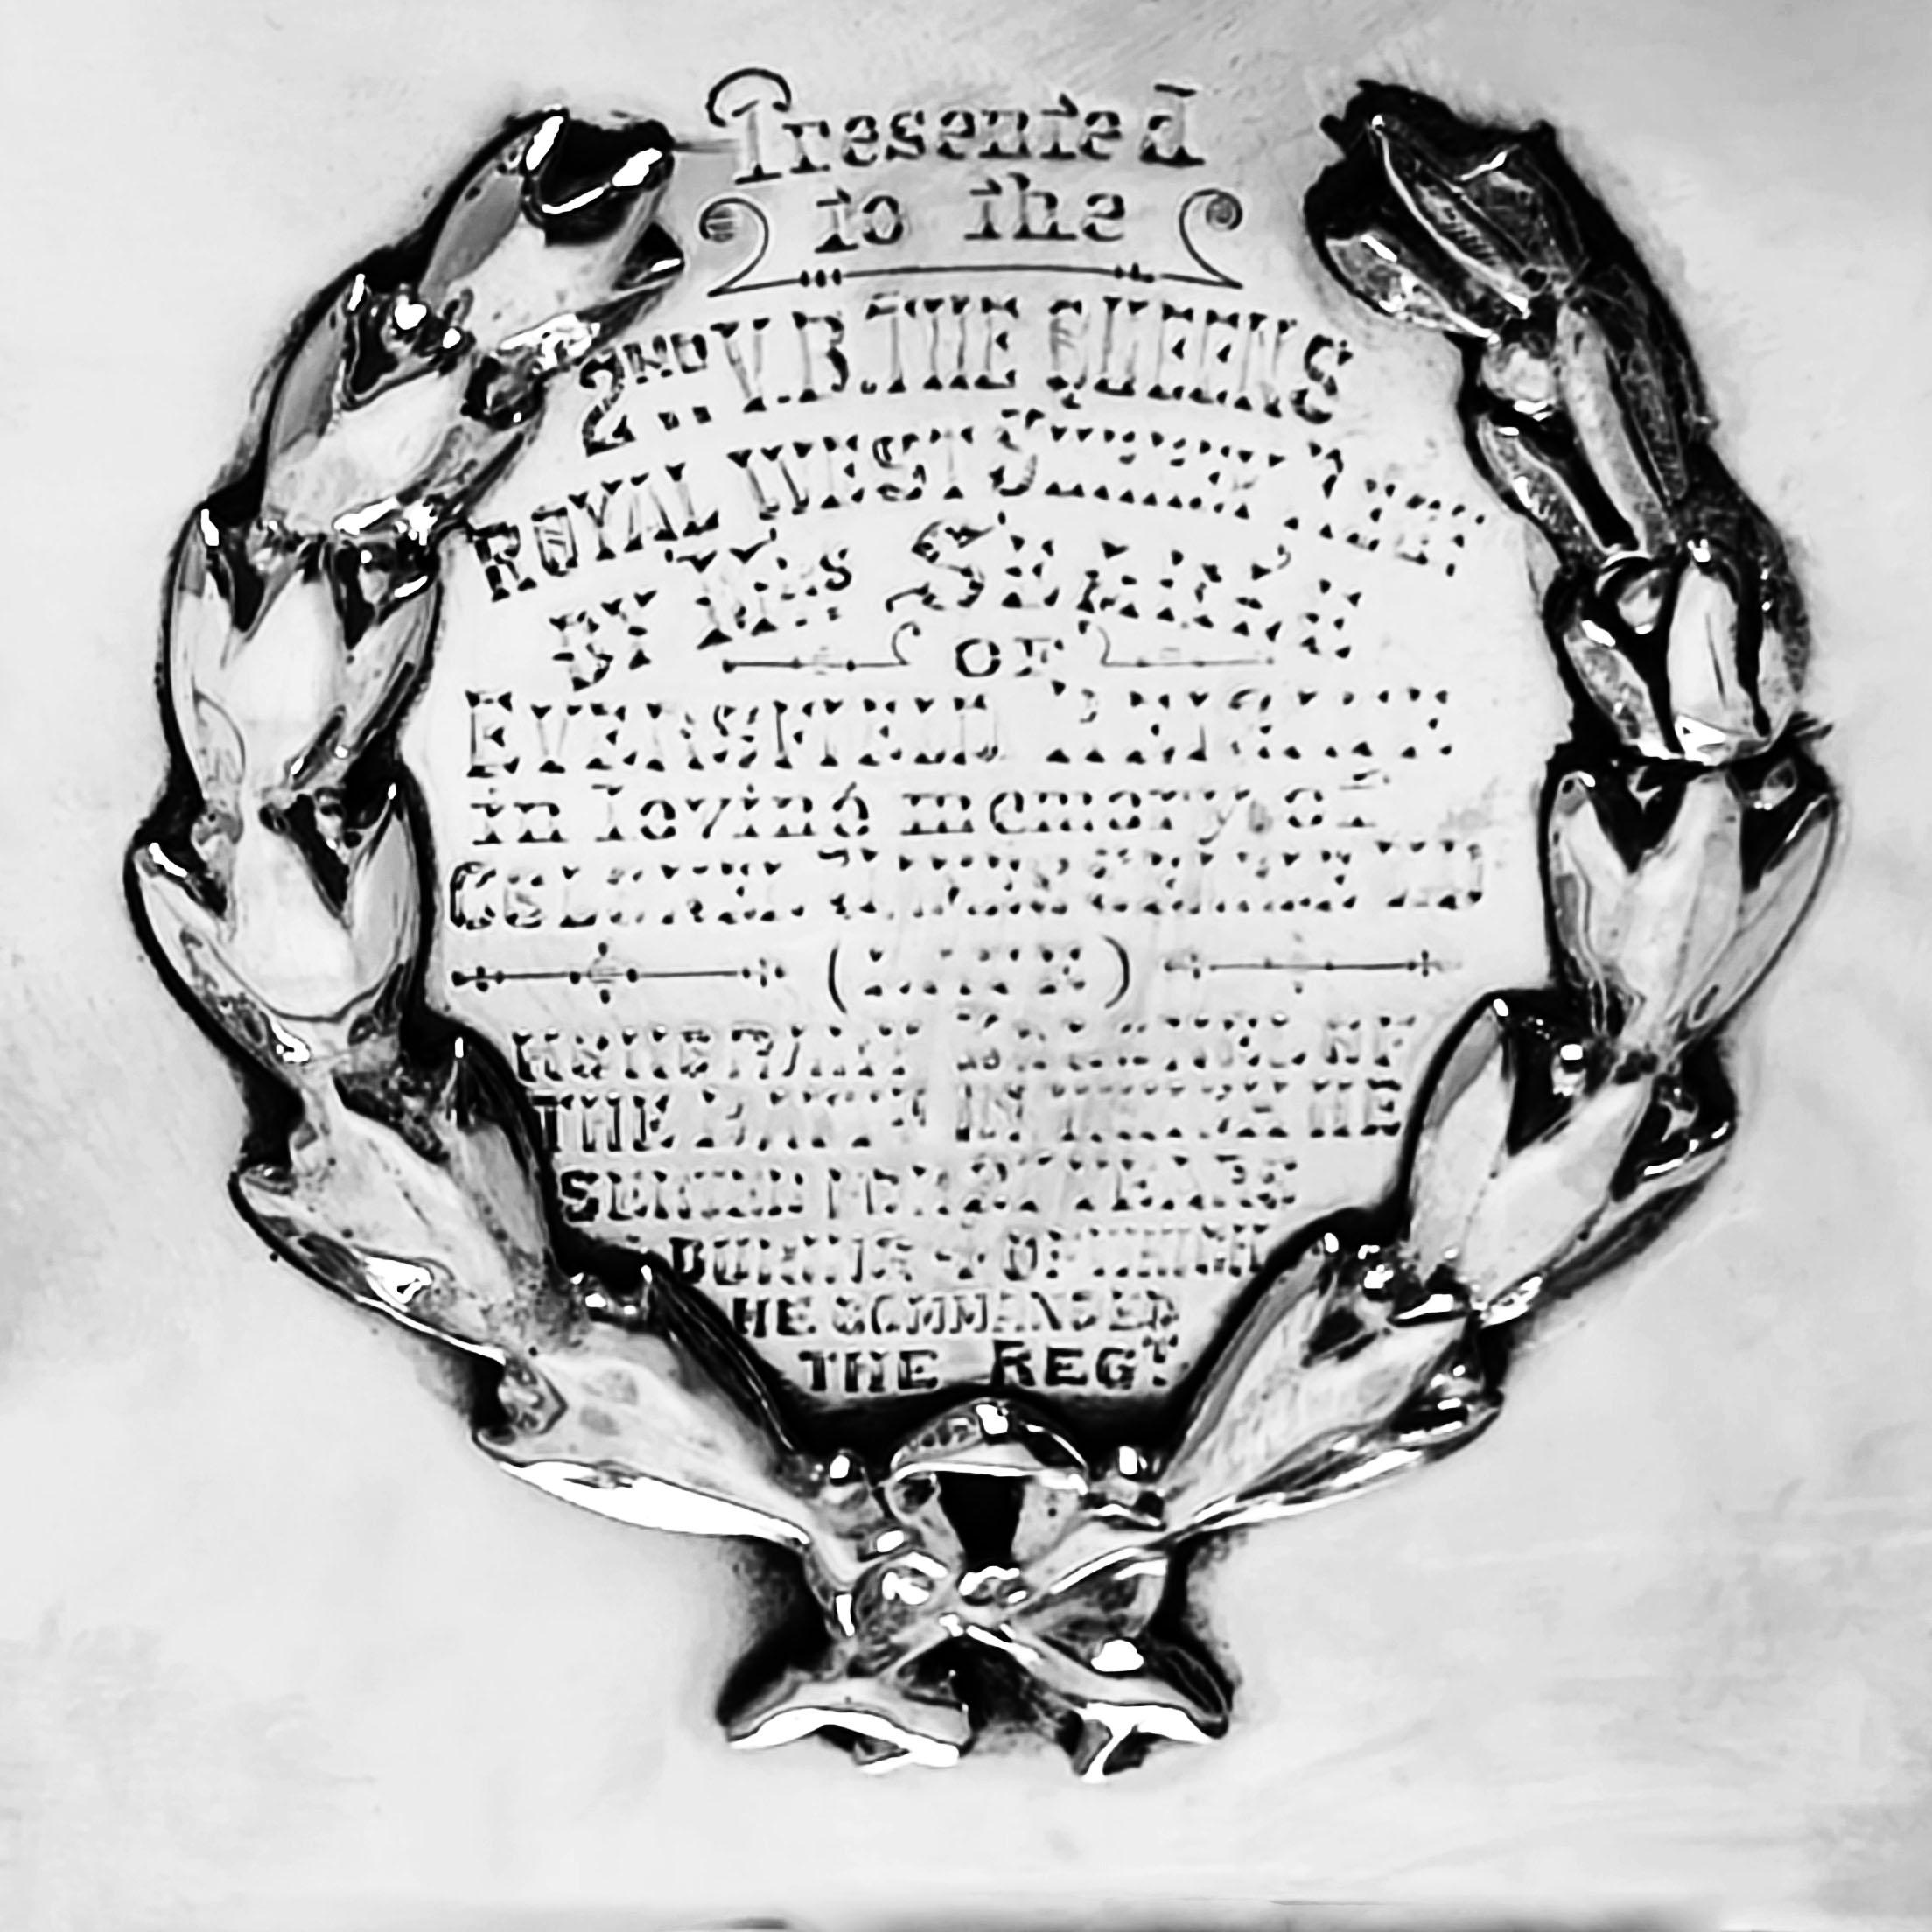 Presented
to the
2ND V.B. THE QUEENS
ROYAL WEST SURREY REG
BY MRS SEARLE
OF
EVERSFIELD REIGATE
in loving memory of
COLONEL
(LATE)
HONORARY COLONEL OF
THE BATTN IN WHICH HE
SERVED FOR 27 YEARS
DURING 7 OF WHICH
HE COMMANDED
THE REGT